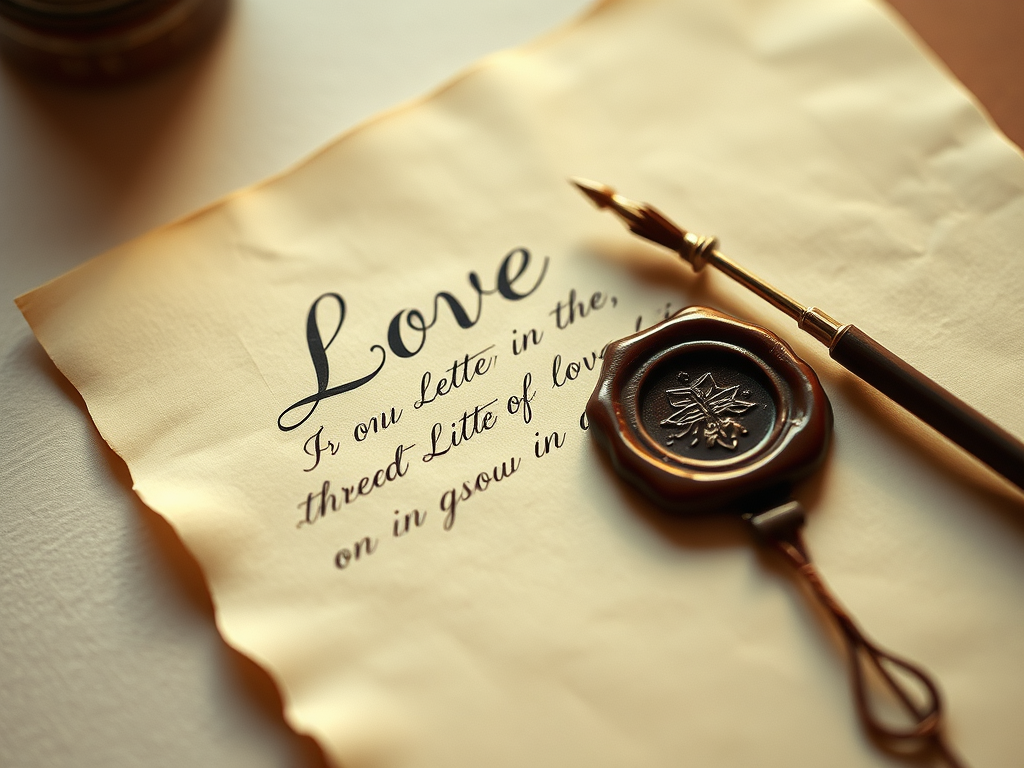 Love
Ir onu Lette in the,
threed Litte of love
on in gsow in